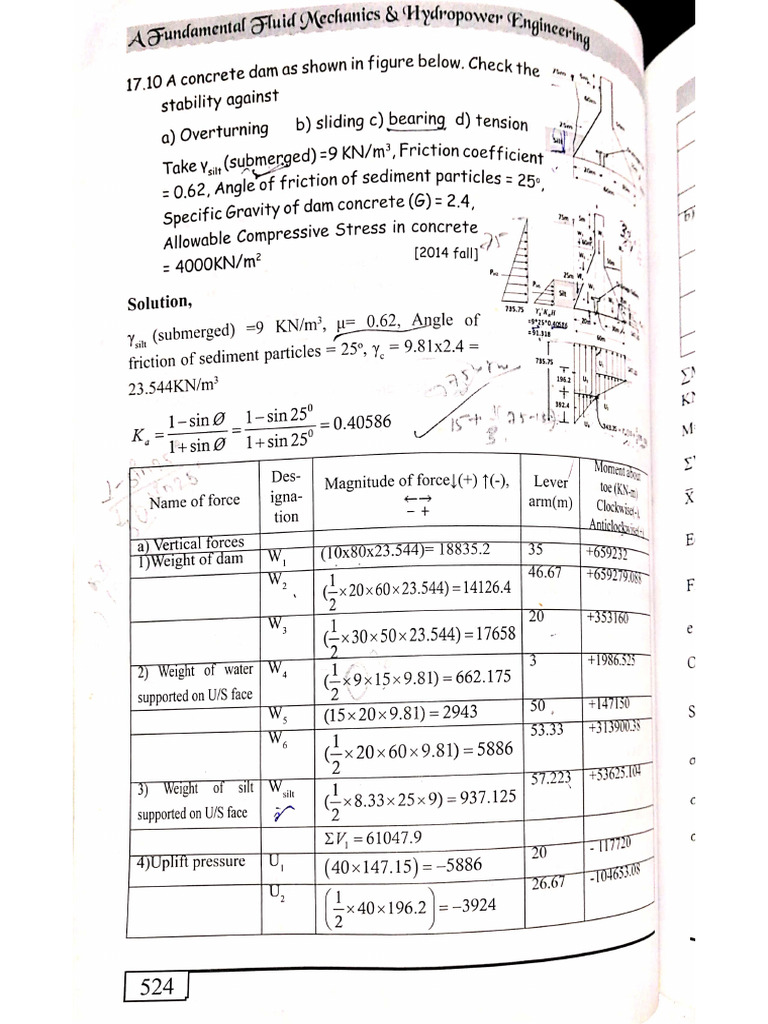 A Fundamental Fluid Mechanics & Hydropower Engineering
17.10 A concrete dam as shown in figure below. Check the
stability against
a) Overturning b) sliding c) bearing d) tension
Take γsilt (submerged) =9 KN/m³, Friction coefficient
= 0.62, Angle of friction of sediment particles = 25°,
Specific Gravity of dam concrete (G) = 2.4,
Allowable Compressive Stress in concrete
= 4000KN/m² [2014 fall]
75m 5m
60m
50m
25m
Silt
20m
60m
75m 5m
25m
Silt
735.75
=9*25*0.40586
=91.318
20m
60m
735.75
196.2
392.4
Solution,
γsilt (submerged) =9 KN/m³, μ= 0.62, Angle of
friction of sediment particles = 25°, γc = 9.81x2.4 =
23.544KN/m³
Ka = (1-sin Ø)/(1+sin Ø) = (1-sin 25⁰)/(1+sin 25⁰) = 0.40586
Name of force Des-igna-tion Magnitude of force↓(+) ↑(-), ←→ − + Lever arm(m) Moment about toe (KN-m) Clockwise(- Anticlockwise
a) Vertical forces
1)Weight of dam W₁ (10x80x23.544)= 18835.2 35 +659232
W₂ (1/2×20×60×23.544)=14126.4 46.67 +659279.088
W₃ (1/2×30×50×23.544)=17658 20 +353160
2) Weight of water supported on U/S face W₄ (1/2×9×15×9.81)=662.175 3 +1986.525
W₅ (15×20×9.81)=2943 50 +147150
W₆ (1/2×20×60×9.81)=5886 53.33 +313900.38
3) Weight of silt supported on U/S face Wsilt (1/2×8.33×25×9)=937.125 57.223 +53625.104
ΣV₁=61047.9
4)Uplift pressure U₁ (40×147.15)=−5886 20 - 117720
U₂ (1/2×40×196.2)=−3924 26.67 -104653.08
524